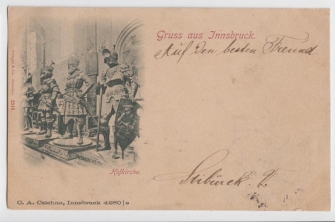 Gruss aus Innsbruck.
Auf den besten Freund
Hofkirche.
C. A. Czichna, Innsbruck 4280 | a